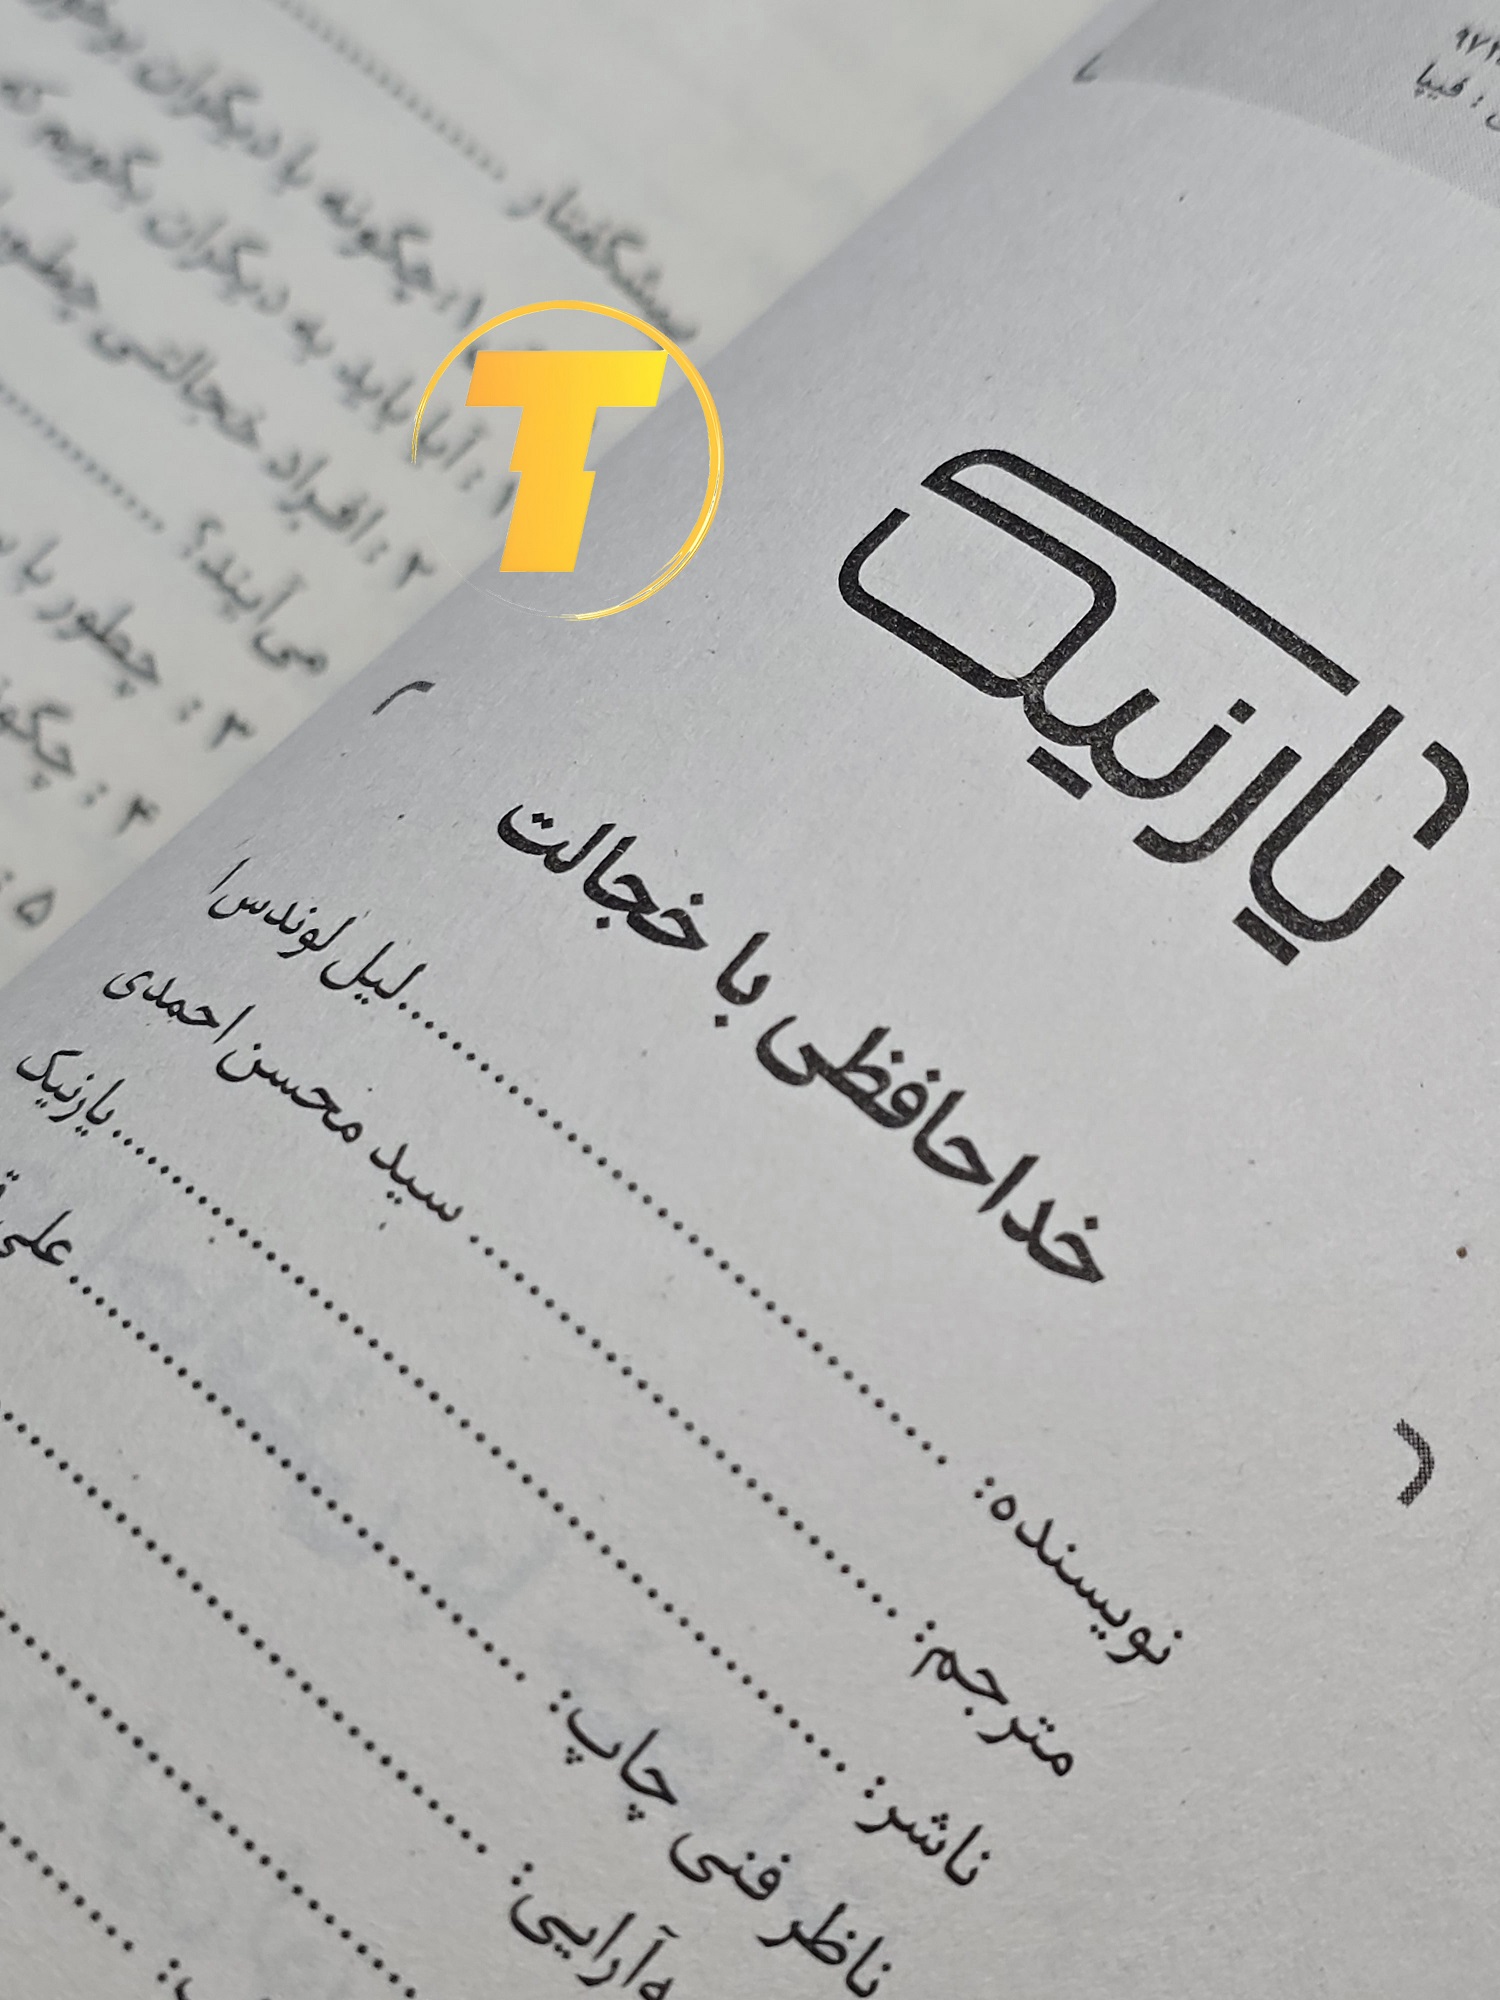 : فیپا
یارنیک
خداحافظی با خجالت
نویسنده: ........ لیل لوندس/
مترجم: ........ سید محسن احمدی
ناشر: ........ یارنیک
ناظر فنی چاپ: ........ علی
ه‌آرایی: ........
پیشگفتار ........
۱: چگونه با دیگران
۱: آیا باید به دیگران بگوییم که
۲: افراد خجالتی چطور
می‌آیند؟ ........
۳: چطور با
۴:
۵:
T